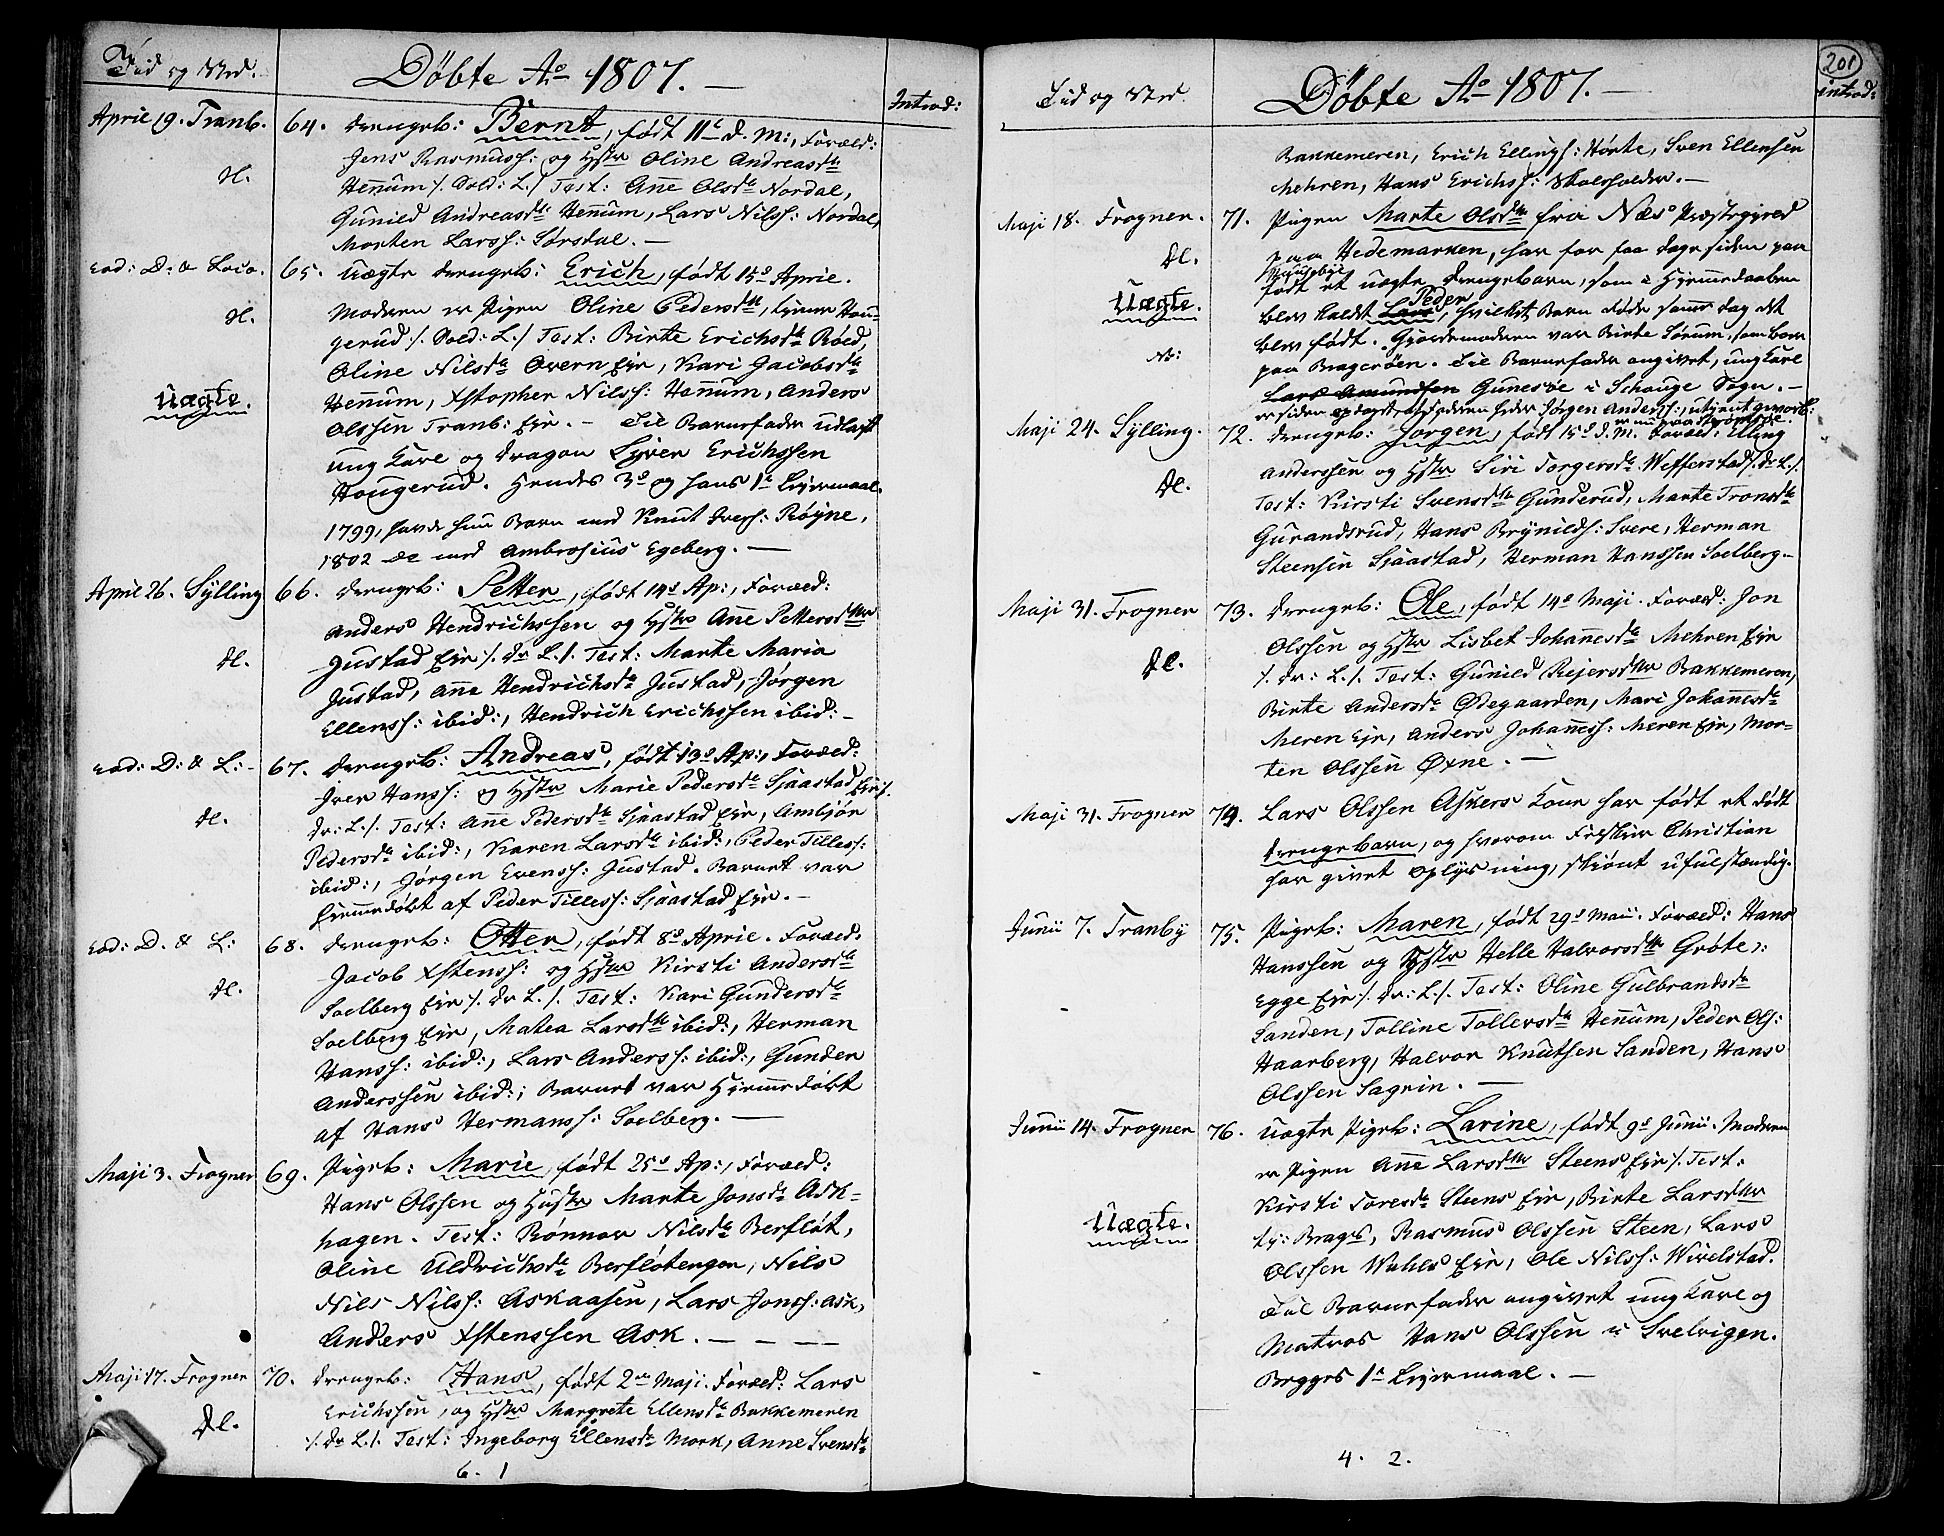 Tid og Sted.
Døbte Ao 1807. —
Introd:
April 19. Tranb.
64. Drengeb: Bernt, født 11te d. M:, Foræld:
Jens Rasmuss: og Hstr Oline Andreasdtr
Hennum /. Sold: L./ Test: Anne Olsdtr Nordal,
Gunild Andreasdtr Hennum, Lars Nilss: Nordal,
Morten Larss: Sørsdal. —
Eod: D: & Loco.
65. Uægte Drengeb: Erich, født 15de April.
Moderen er Pigen Oline Pedersdtr, tjener Hou-
gerud /. Sold: L./ Test: Birte Erichsdtr Røed,
Oline Nilsdtr Overn Eje, Kari Jacobsdtr
Uægte.
Hennum, Xstopher Nilss: Hennum, Anders
Olssen Tranb: Eje. — Til Barnefader udlagt
ung Karl og Dragon Syver Erichssen
Hougerud. Hendes 3de og hans 1te Leiermaal.
1799, havde hun Barn med Knut Iverss: Røyne,
1802 do med Ambrosius Egeberg. —
April 26. Sylling
66. Drengeb: Petter, født 14de Ap:, Foræld:
Anders Hendrichssen og Hstr Anne Pettersdtr
dl.
Justad Eje /. Dr L./. Test: Marte Maria
Justad, Anne Hendrichsdtr Justad, Jørgen
Ellenss: ibid:, Hendrich Erichssen ibid: –
Eod: D: & L: –
67. Drengeb: Andreas, født 13de Ap:, Foræld:
Iver Hanss: og Hstr Marie Pedersdtr Sjaastad Eje /.
dl.
Dr: L./. Test: Anne Pedersdtr Sjaastad Eje, Ambjør
Pedersdtr ibid:, Karen Larsdtr ibid:, Peder Tilless:
ibid:, Jørgen Evenss: Justad. Barnet var
hjemmedøbt af Peder Tilless: Sjaastad Eje. –
Eod: D. & L:
68. Drengeb: Otter, født 8de April. Foræld:
Jacob Xstenss: og Hstr Kirsti Andersdtr
dl.
Solberg Eje /. Dr L./. Test: Kari Gundersdtr
Solberg Eje, Mathea Larsdtr ibid:, Herman
Hanss: ibid:, Lars Anderss: ibid:, Gunder
Anderssen ibid:; Barnet var hjemmedøbt
af Hans Hermanss: Solberg. —
Maji 3. Frogner
69. Pigeb: Marie, født 25de Ap:, Foræld:
Hans Olssen og Hustr Marte Jonsdtr Ask-
hagen. Test: Rønnov Nilsdtr Berfløt,
Oline Uldrichsdtr Berfløtengen, Nils
Nils Nilss: Askaasen, Lars Jonss: Ask,
Anders Xstenssen Ask. — — —
Maji 17. Frogner
70. Drengeb: Hans, født 2den Maji. Foræld: Lars
Erichssen, og Hstr Margrete Ellensdtr Bakkemeren
dl.
/. Dr L./. Test: Ingeborg Ellensdtr Mork, Anne Svensdtr
6. 1
201
Tid og Sted.
Døbte Ao 1807. —
introd:
Bakkemeren, Erich Ellingss: Hørte, Sven Ellenssen
Mehren, Hans Erichss: Skoleholder. —
Maji 18. Frogner.
71. Pigen Marte Olsdtr fra Næs Præstegjeld
dl.
paa Hedemarken, har for faa dage siden paa
født et uægte Drengebarn, som i Hjemmedaaben
Uægte.
blev kaldt Lars Peder, hvilket Barn døde samme dag det
blev født. Gjordemoderen var Birte Sørum, som boer
Nb:
paa Bragerøen. Til Barnefader angivet, ung Karl
Lars Amundsen Gunesøe i Schouge Sogn. —
er siden opdaget, at Faderen heder Jørgen Anderss:,
Maji 24. Sylling.
72. Drengeb: Jørgen, født 15de d. M. Foræld: Elling
Anderssen og Hstr Siri Torgersdtr Wefferstad /. Dr L./.
dl.
Test: Kirsti Svensdtr Gunderud, Marte Tronsdtr
Gurandsrud, Hans Brynilds: Svere, Herman
Steenssen Sjaastad, Herman Hanssen Solberg –
Maji 31. Frogner
73. Drengeb: Ole, født 14de Maji. Foræld: Jon
Olssen og Hstr Lisbet Johannesdtr Mehren Eje
dl.
/. Dr: L./. Test: Gunild Rejersdtr Bakkemeren,
Birte Andersdtr Ødegaarden, Mari Johannesdtr
Meren Eje, Anders Johanness: Meren Eje, Mor-
ten Olssen Øxne. —
Maji 31. Frogner
74. Lars Olssen Askers Kone har født et dødt
Drengebarn, og hvorom Christian
har givet Oplysning, skiønt ufulstændig.
Junii 7. Tranby
75. Pigeb: Maren, født 29de Maii. Foræld: Hans
Hanssen og Hstr Helle Halvorsdtr Grøte ɔ:
Egge Eje /. Dr: L./. Test: Oline Gulbrandsdtr
Sanden, Tolline Tollersdtr Hennum, Peder Ols:
Haarberg, Halvor Knutsen Sanden, Hans
Olssen Sagrin. —
Junii 14. Frogner
76. Uægte Pigeb: Larine, født 9de Junii. Moderen
er Pigen Anne Larsdtr Steens Eje /. Test:
Kirsti Toresdtr Steens Eje, Birte Larsdtr
Uægte.
ty: Brags, Rasmus Olssen Steen, Lars
Olssen Wahls Eje, Ole Nilss: Wivelstad.
Til Barnefader angivet ung Karl og
Matros Hans Olssen i Svelvigen.
Begges 1te Leiermaal. —
4. 2.